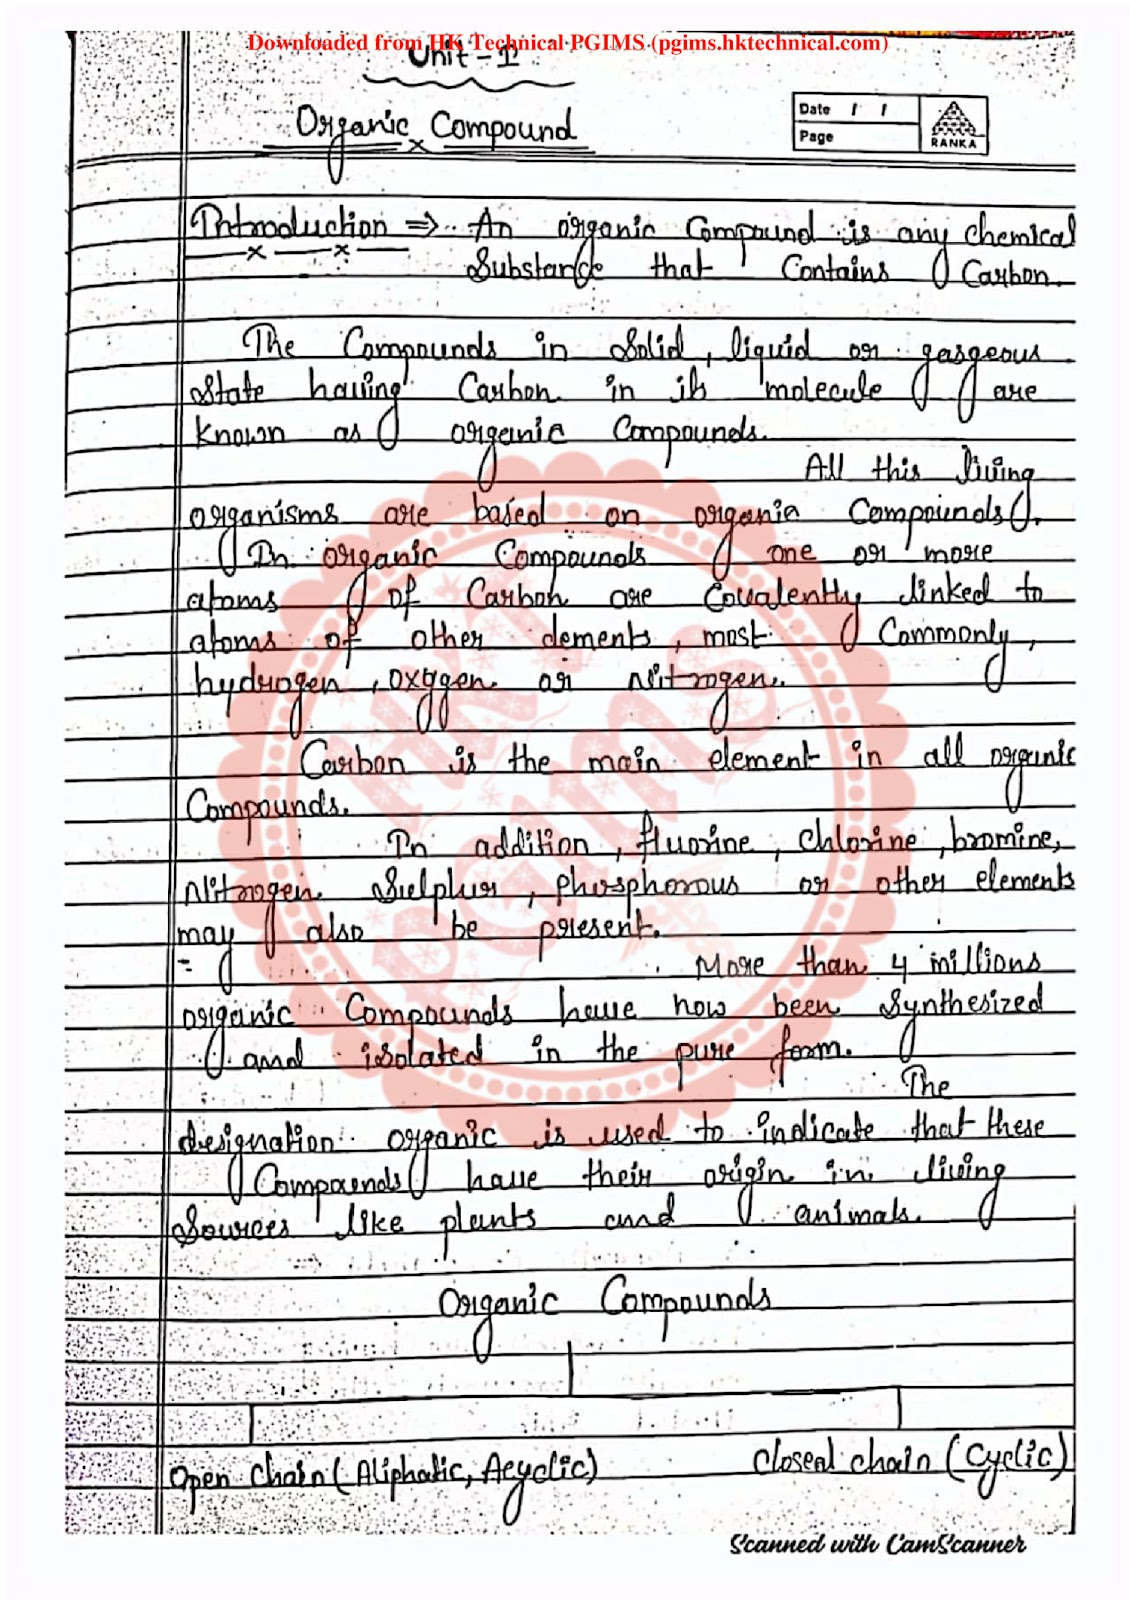 Downloaded from HK Technical PGIMS (pgims.hktechnical.com)
Unit - I
Organic Compound
Date / /
Page
RANKA
Introduction ⇒ An organic Compound is any chemical
Substance that Contains Carbon.
The Compounds in Solid, liquid or gasgeous
State having Carbon in its molecule are
known as organic Compounds.
All this living
organisms are based on organic Compounds.
In organic Compounds one or more
atoms of Carbon are Covalently linked to
atoms of other elements, most Commonly,
hydrogen, oxygen or Nitrogen.
Carbon is the main element in all organic
Compounds.
In addition, fluorine, chlorine, bromine,
Nitrogen Sulphur, phosphorous or other elements
may also be present.
More than 4 millions
organic Compounds have now been Synthesized
and isolated in the pure form.
The
designation organic is used to indicate that these
Compounds have their origin in living
Sources like plants and animals.
Organic Compounds
Open chain (Aliphatic, Acyclic)
Closed chain (Cyclic)
HK
PGIMS
Scanned with CamScanner